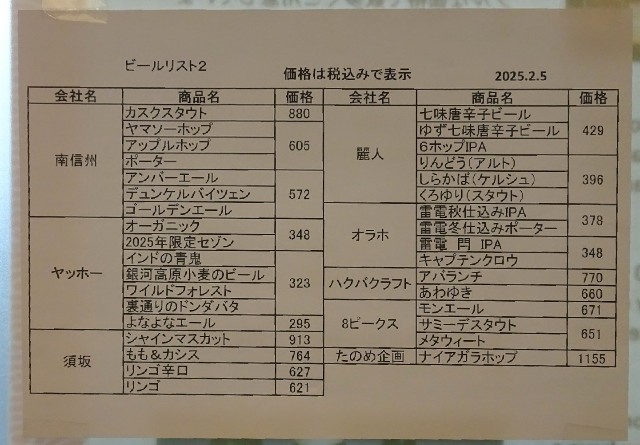 ビールリスト2 価格は税込みで表示 2025.2.5
会社名 商品名 価格
南信州
カスクスタウト 880
ヤマソーホップ
アップルホップ 605
ポーター
アンバーエール
デュンケルバイツェン 572
ゴールデンエール
ヤッホー
オーガニック 348
2025年限定セゾン
インドの青鬼
銀河高原小麦のビール 323
ワイルドフォレスト
裏通りのドンダバタ
よなよなエール 295
須坂
シャインマスカット 913
もも&カシス 764
リンゴ辛口 627
リンゴ 621
会社名 商品名 価格
麗人
七味唐辛子ビール
ゆず七味唐辛子ビール 429
6ホップIPA
りんどう(アルト)
しらかば(ケルシュ) 396
くろゆり(スタウト)
オラホ
雷電秋仕込みIPA 378
雷電冬仕込みポーター
雷電 閂 IPA 348
キャプテンクロウ
ハクバクラフト
アバランチ 770
あわゆき 660
8ピークス
モンエール 671
サミーデスタウト 651
メタウィート
たのめ企画 ナイアガラホップ 1155